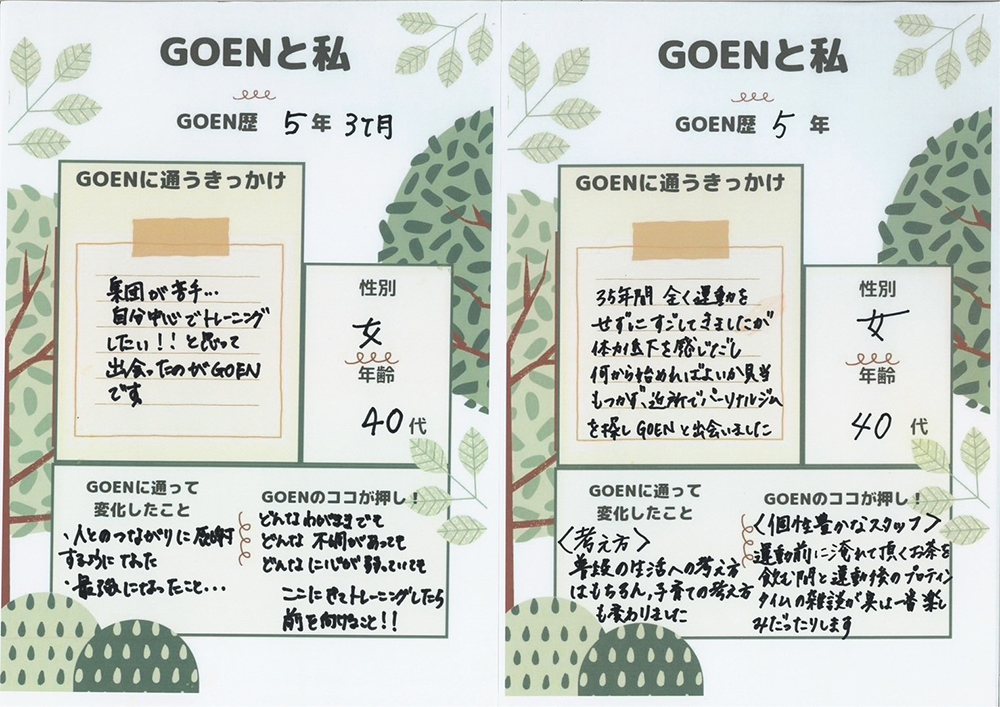 GOENと私
GOEN歴 5年 3ケ月
GOENに通うきっかけ
集団が苦手…
自分中心でトレーニング
したい!!と思って
出会ったのがGOEN
です
性別
女
年齢
40代
GOENに通って
変化したこと
・人とのつながりに感謝
するようになった
・最強になったこと…
GOENのココが押し!
どんなわがままでも
どんな不調があっても
どんなに心が弱っていても
ここにきてトレーニングしたら
前を向けること!!
GOENと私
GOEN歴 5年
GOENに通うきっかけ
35年間 全く運動を
せずにすごしてきましたが
体力低下を感じだし
何から始めればよいか見当
もつかず、近所でパーソナルジム
を探しGOENと出会いました
性別
女
年齢
40代
GOENに通って
変化したこと
〈考え方〉
普段の生活への考え方
はもちろん,子育ての考え方
も変わりました
GOENのココが押し!
〈個性豊かなスタッフ〉
運動前に淹れて頂くお茶を
飲む間と運動後のプロテイン
タイムの雑談が実は一番楽し
みだったりします